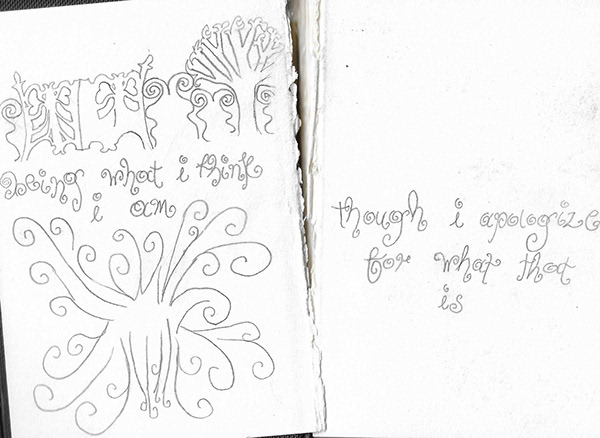 being what i think
i am
though i apologize
for what that
is